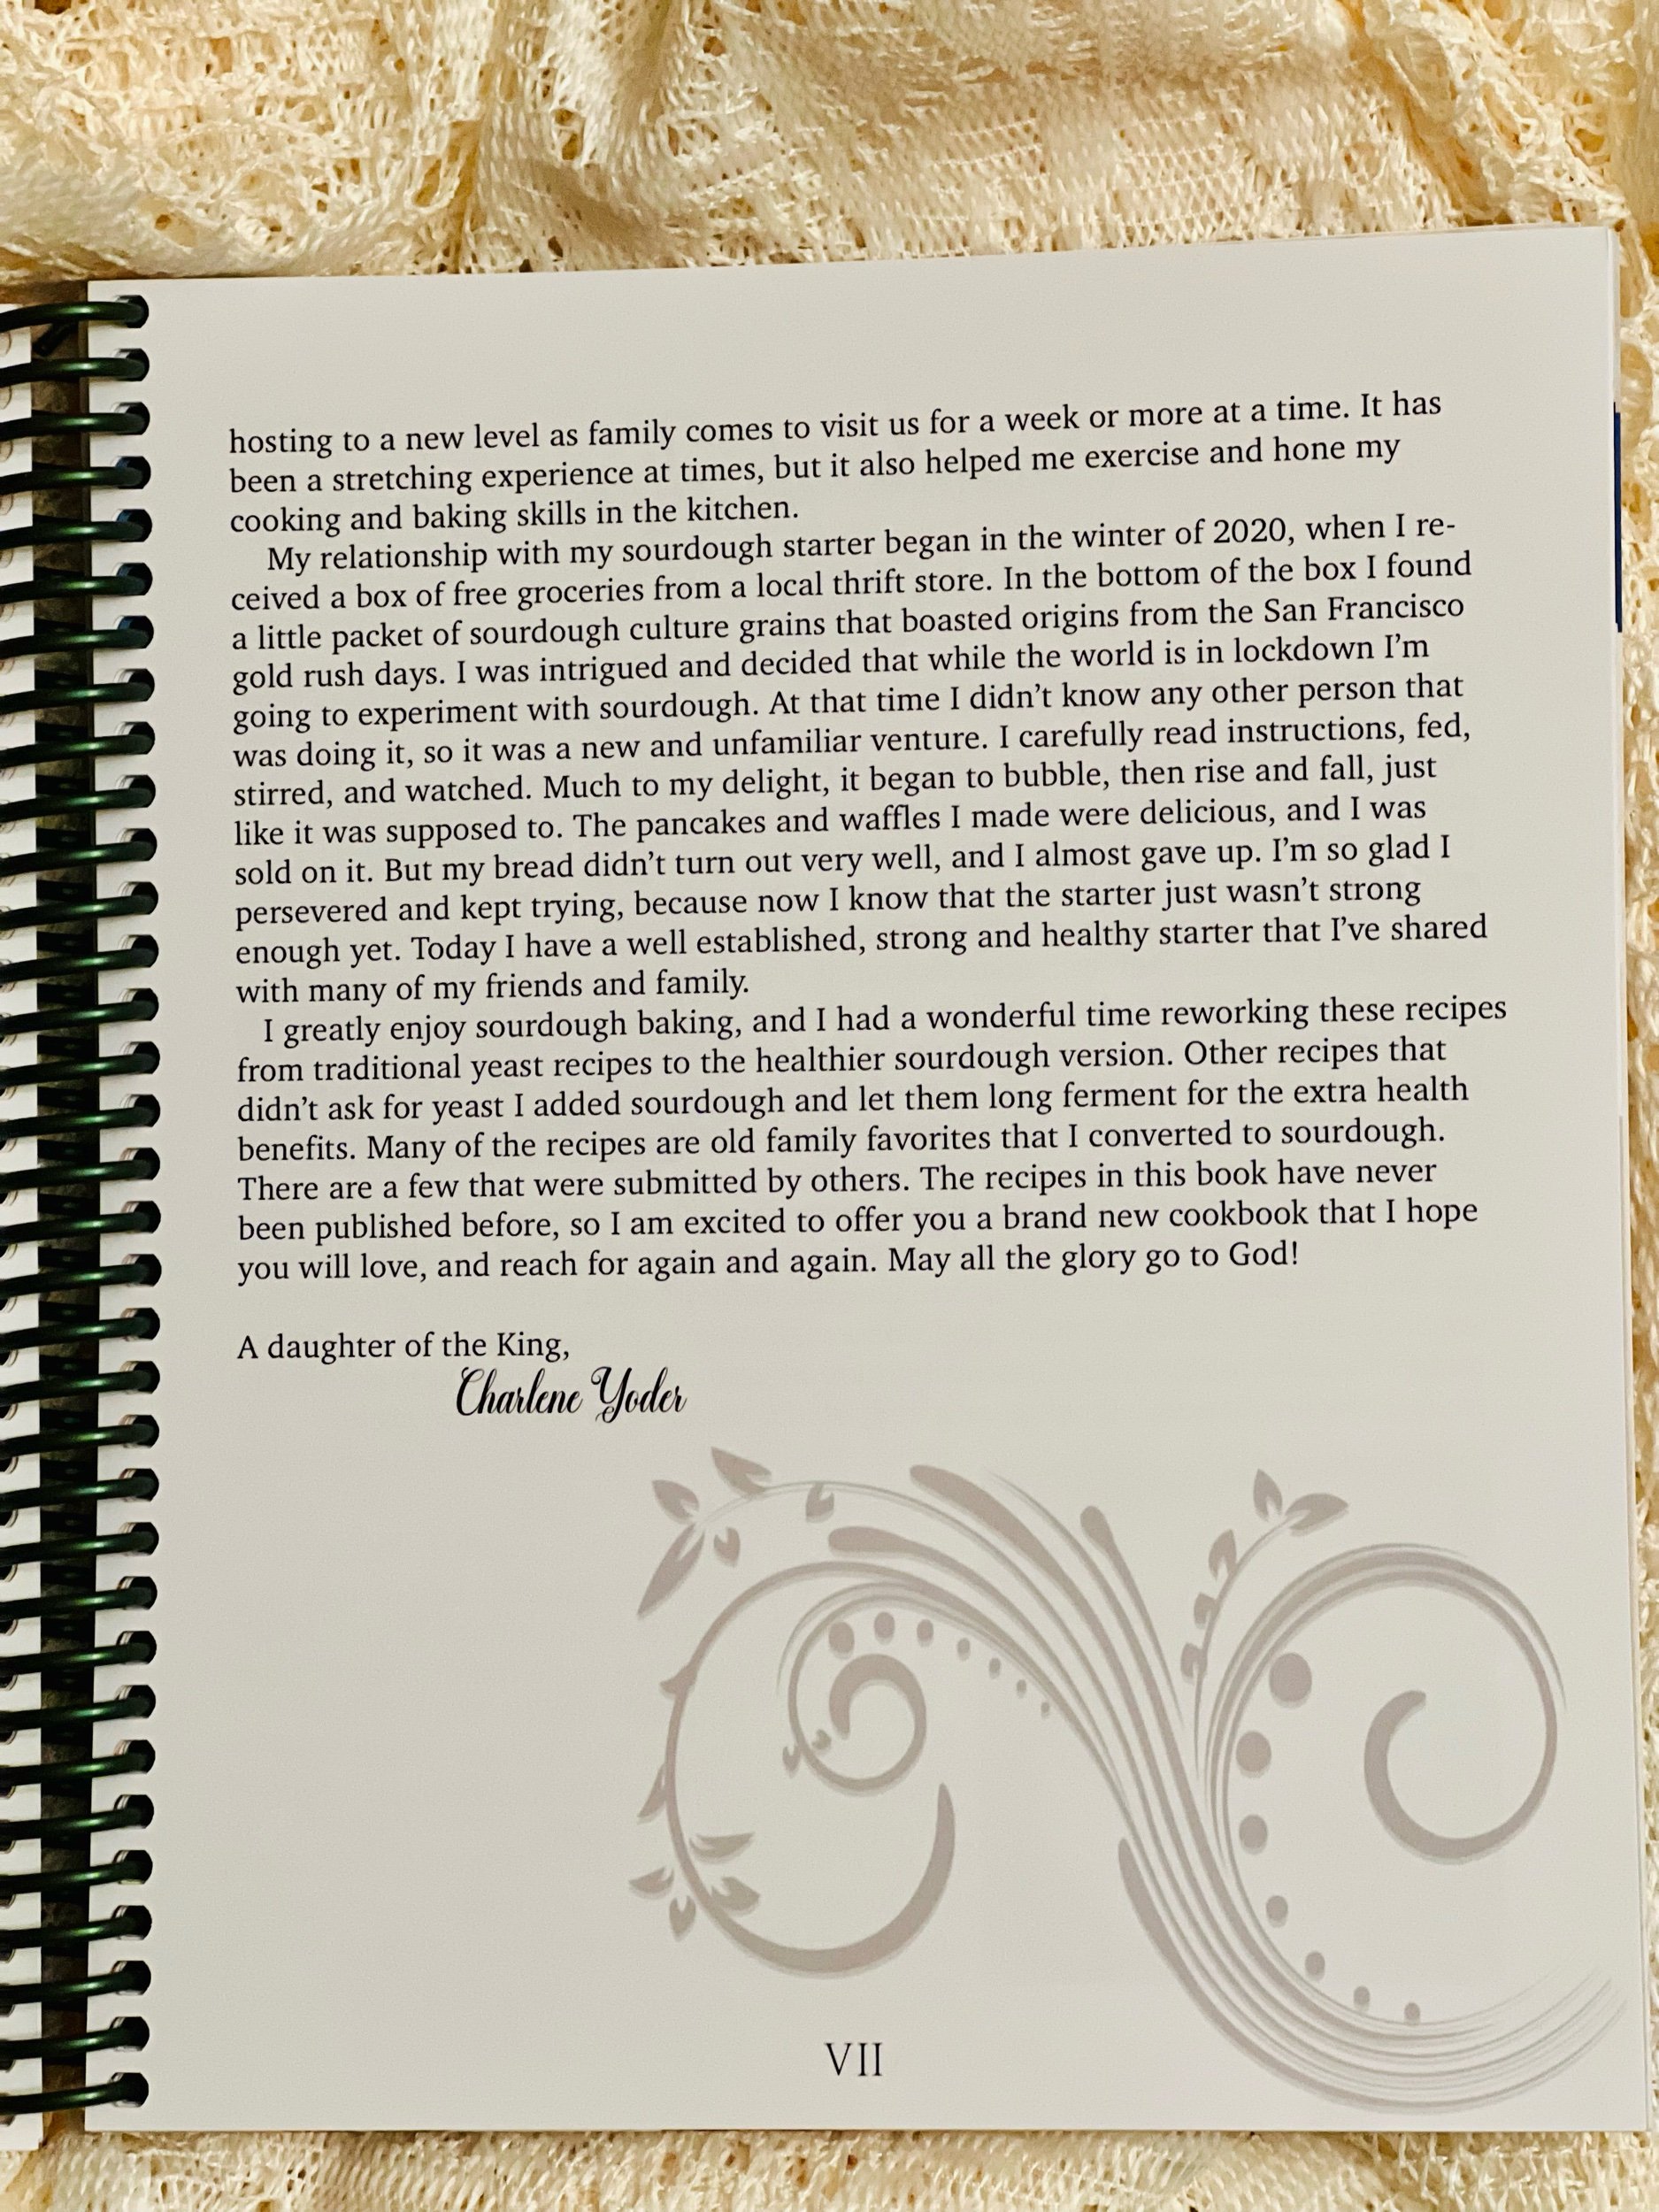 hosting to a new level as family comes to visit us for a week or more at a time. It has
been a stretching experience at times, but it also helped me exercise and hone my
cooking and baking skills in the kitchen.
My relationship with my sourdough starter began in the winter of 2020, when I re-
ceived a box of free groceries from a local thrift store. In the bottom of the box I found
a little packet of sourdough culture grains that boasted origins from the San Francisco
gold rush days. I was intrigued and decided that while the world is in lockdown I’m
going to experiment with sourdough. At that time I didn’t know any other person that
was doing it, so it was a new and unfamiliar venture. I carefully read instructions, fed,
stirred, and watched. Much to my delight, it began to bubble, then rise and fall, just
like it was supposed to. The pancakes and waffles I made were delicious, and I was
sold on it. But my bread didn’t turn out very well, and I almost gave up. I’m so glad I
persevered and kept trying, because now I know that the starter just wasn’t strong
enough yet. Today I have a well established, strong and healthy starter that I’ve shared
with many of my friends and family.
I greatly enjoy sourdough baking, and I had a wonderful time reworking these recipes
from traditional yeast recipes to the healthier sourdough version. Other recipes that
didn’t ask for yeast I added sourdough and let them long ferment for the extra health
benefits. Many of the recipes are old family favorites that I converted to sourdough.
There are a few that were submitted by others. The recipes in this book have never
been published before, so I am excited to offer you a brand new cookbook that I hope
you will love, and reach for again and again. May all the glory go to God!
A daughter of the King,
Charlene Yoder
VII